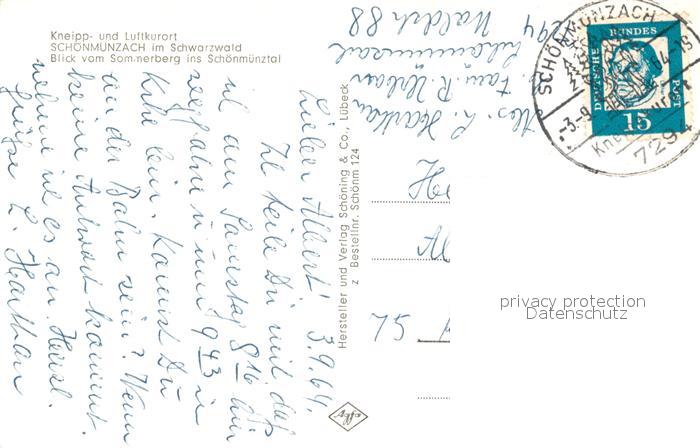 Kneipp- und Luftkurort
SCHÖNMÜNZACH im Schwarzwald
Blick vom Sommerberg ins Schönmünztal
3.9.64.
Lieber Albert!
Ich teile Dir mit, daß
ich am Samstag 8 16 hier
wegfahre u. um 9 43 in
K'he bin. Kannst Du
an der Bahn sein? Wenn
keine Antwort kommt
nehme ich es an. Herzl.
Grüße L. Harthan
Hersteller und Verlag Schöning & Co., Lübeck
z Bestellnr. Schönm 124
Abs. L. Harthan
Fam. R.
7294
Waldstr 88
SCHÖNMÜNZACH
-3.-9. 64
7294
DEUTSCHE BUNDES POST
15
75
privacy protection
Datenschutz